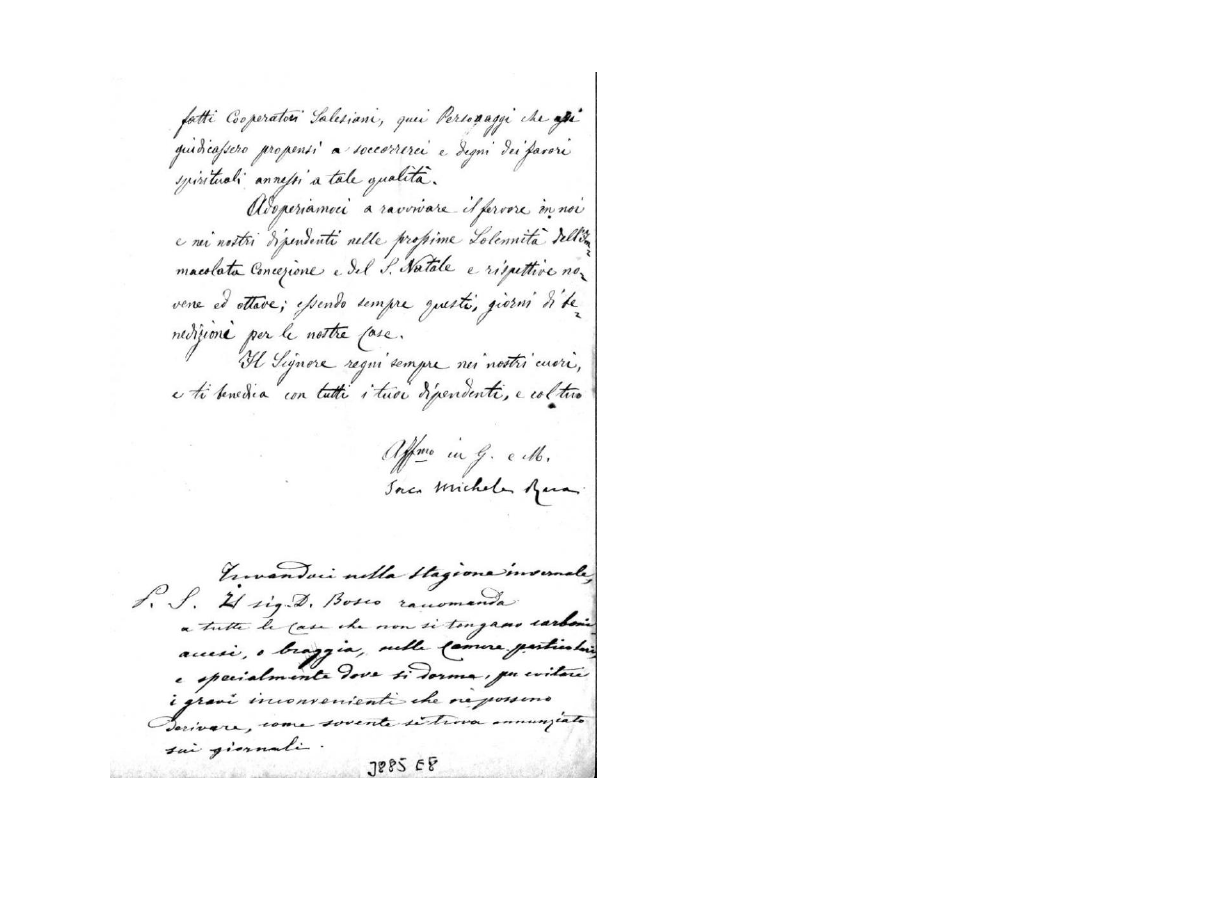 fatti Cooperatori Salesiani, quei Personaggi che si
giudicassero propensi a soccorrerci e degni dei favori
spirituali annessi a tale qualità.
Adoperiamoci a ravvivare il fervore in noi
e nei nostri dipendenti nelle prossime Solennità dell'Im=
macolata Concezione e del S. Natale e rispettive no=
vene ed ottave; essendo sempre questi, giorni di be=
nedizioni per le nostre Case.
Il Signore regni sempre nei nostri cuori,
e ti benedica con tutti i tuoi dipendenti, e col tuo
Affmo in G. e M.
Sac. Michele Rua
Trovandoci nella stagione invernale,
P. S. Il sig. D. Bosco raccomanda
a tutte le Case che non si tengano carboni
accesi, o braggia, nelle Camere particolari,
e specialmente dove si dorma, per evitare
i gravi inconvenienti che ne possono
derivare, come sovente si trova annunziato
sui giornali.
E8